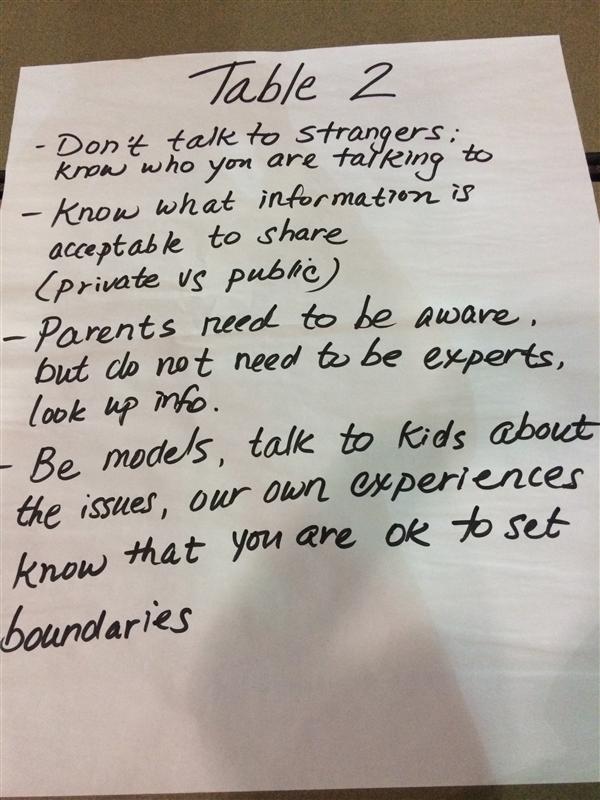 Table 2
- Don't talk to strangers;
know who you are talking to
- Know what information is
acceptable to share
(private vs public)
- Parents need to be aware,
but do not need to be experts,
look up info.
- Be models, talk to kids about
the issues, our own experiences
know that you are ok to set
boundaries